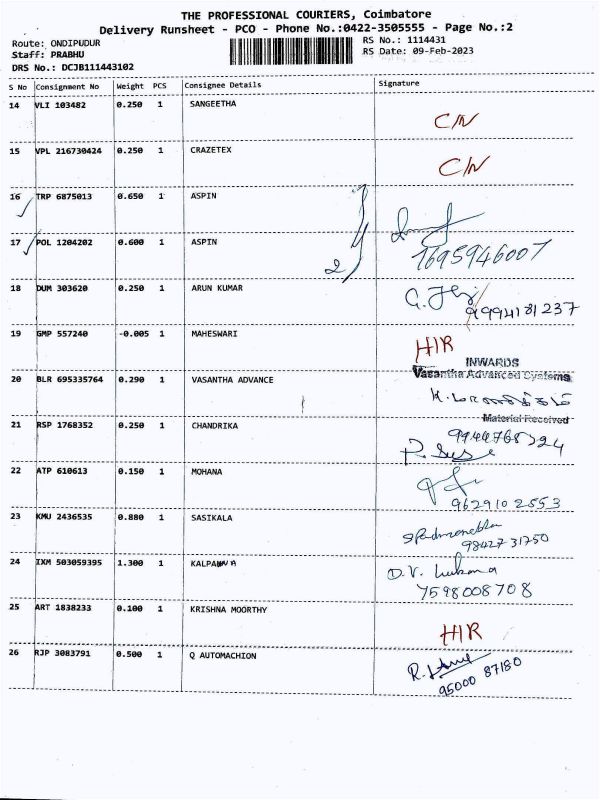 THE PROFESSIONAL COURIERS, Coimbatore
Delivery Runsheet - PCO - Phone No.:0422-3505555 - Page No.:2
Route: ONDIPUDUR RS No.: 1114431
Staff: PRABHU RS Date: 09-Feb-2023
DRS No.: DCJB111443102
S No Consignment No Weight PCS Consignee Details Signature
14 VLI 103482 0.250 1 SANGEETHA
C/N
15 VPL 216730424 0.250 1 CRAZETEX
C/N
16 TRP 6875013 0.650 1 ASPIN
17 POL 1204202 0.600 1 ASPIN
2)
1695946007
18 DUM 303620 0.250 1 ARUN KUMAR
9994181237
19 GMP 557240 -0.005 1 MAHESWARI
HIR
INWARDS
Vasantha Advanced Systems
20 BLR 695335764 0.290 1 VASANTHA ADVANCE
Material Received
21 RSP 1768352 0.250 1 CHANDRIKA
22 ATP 610613 0.150 1 MOHANA
9629102553
23 KMU 2436535 0.880 1 SASIKALA
9842731750
24 IXM 503059395 1.300 1 KALPANA
D.V.
7598008708
25 ART 1838233 0.100 1 KRISHNA MOORTHY
HIR
26 RJP 3083791 0.500 1 Q AUTOMACHION
95000 87180